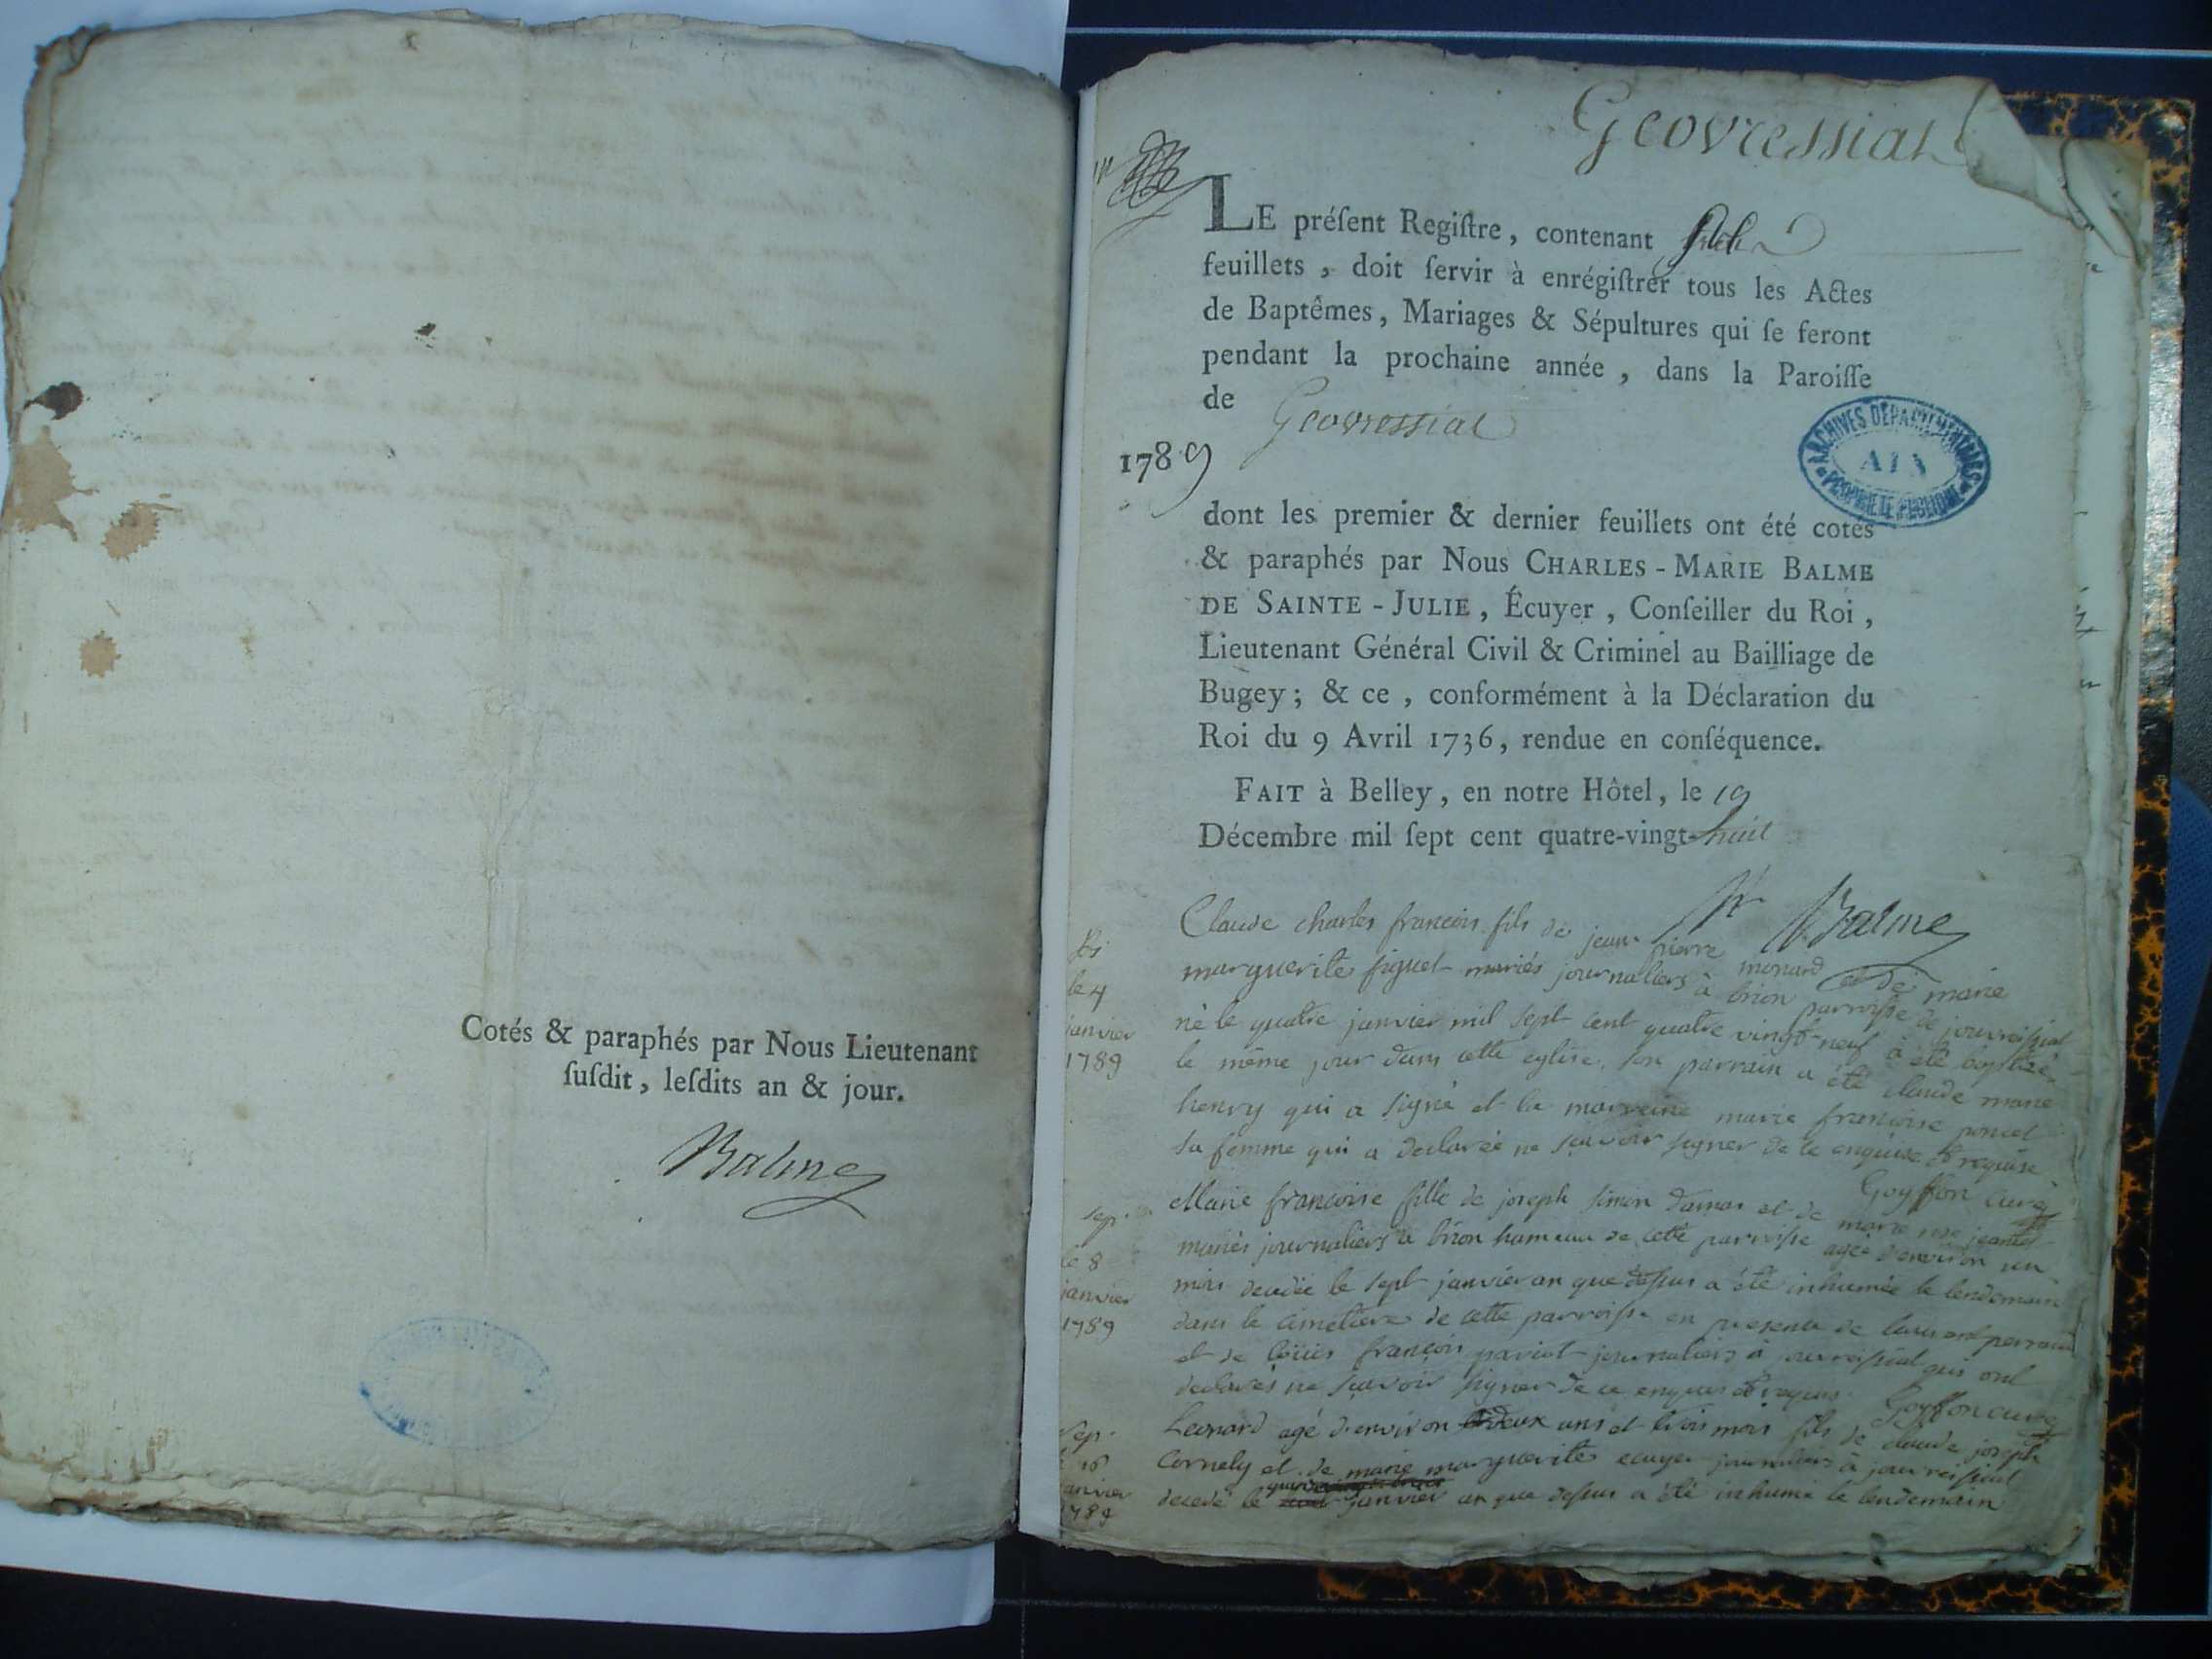 Cotés & paraphés par Nous Lieutenant
fufdit, lefdits an & jour.
Balme
Geovressiat
LE préſent Regiſtre, contenant
feuillets, doit ſervir à enrégiſtrer tous les Actes
de Baptêmes, Mariages & Sépultures qui ſe feront
pendant la prochaine année, dans la Paroiſſe
de Geovressiat
1789
ARCHIVES DEPARTEMENTALES
AIN
PROPRIETE PUBLIQUE
dont les premier & dernier feuillets ont été cotés
& paraphés par Nous CHARLES-MARIE BALME
DE SAINTE-JULIE, Écuyer, Conſeiller du Roi,
Lieutenant Général Civil & Criminel au Bailliage de
Bugey; & ce, conformément à la Déclaration du
Roi du 9 Avril 1736, rendue en conſéquence.
FAIT à Belley, en notre Hôtel, le 19
Décembre mil ſept cent quatre-vingt-huit
Balme
le 4
janvier
1789
Claude charles francois fils de jean pierre monard et de marie
marguerite figuet mariés journaliers à brion parroisse de jouvressiat
né le quatre janvier mil sept cent quatre vingt neuf a été baptisé
le même jour dans cette eglise, son parrain a été claude marie
henry qui a signé et la marreine marie francoise poncet
sa femme qui a declarée ne sçavoir signer de ce enquise & requise
Goyffon curé
sep.
le 8
janvier
1789
Marie francoise fille de joseph simon damas et de marie
mariés journaliers a brion hameau de cette parroisse agée d'environ un
mois decedée le sept janvier an que dessus a été inhumée le lendemain
dans le cimetiere de cette parroisse en presence de
et de loüis françois journaliers à jouvreissiat qui ont
declarés ne sçavoir signer de ce enquis & requis.
Goyffon curé
sep.
16
janvier
1789
Leonard agé d'environ deux ans et trois mois fils de claude joseph
Cornely et de marie marguerite ecuyer journaliers à jouvreissiat
decedé le janvier an que dessus a été inhumé le lendemain